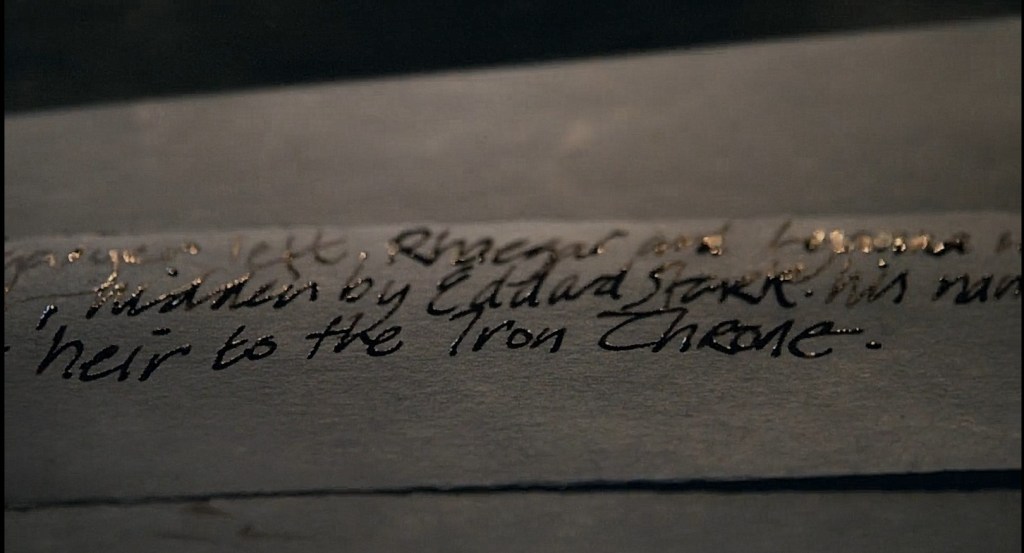 left, Rhaegar and
, hidden by Eddard Stark. his
heir to the Iron Throne.